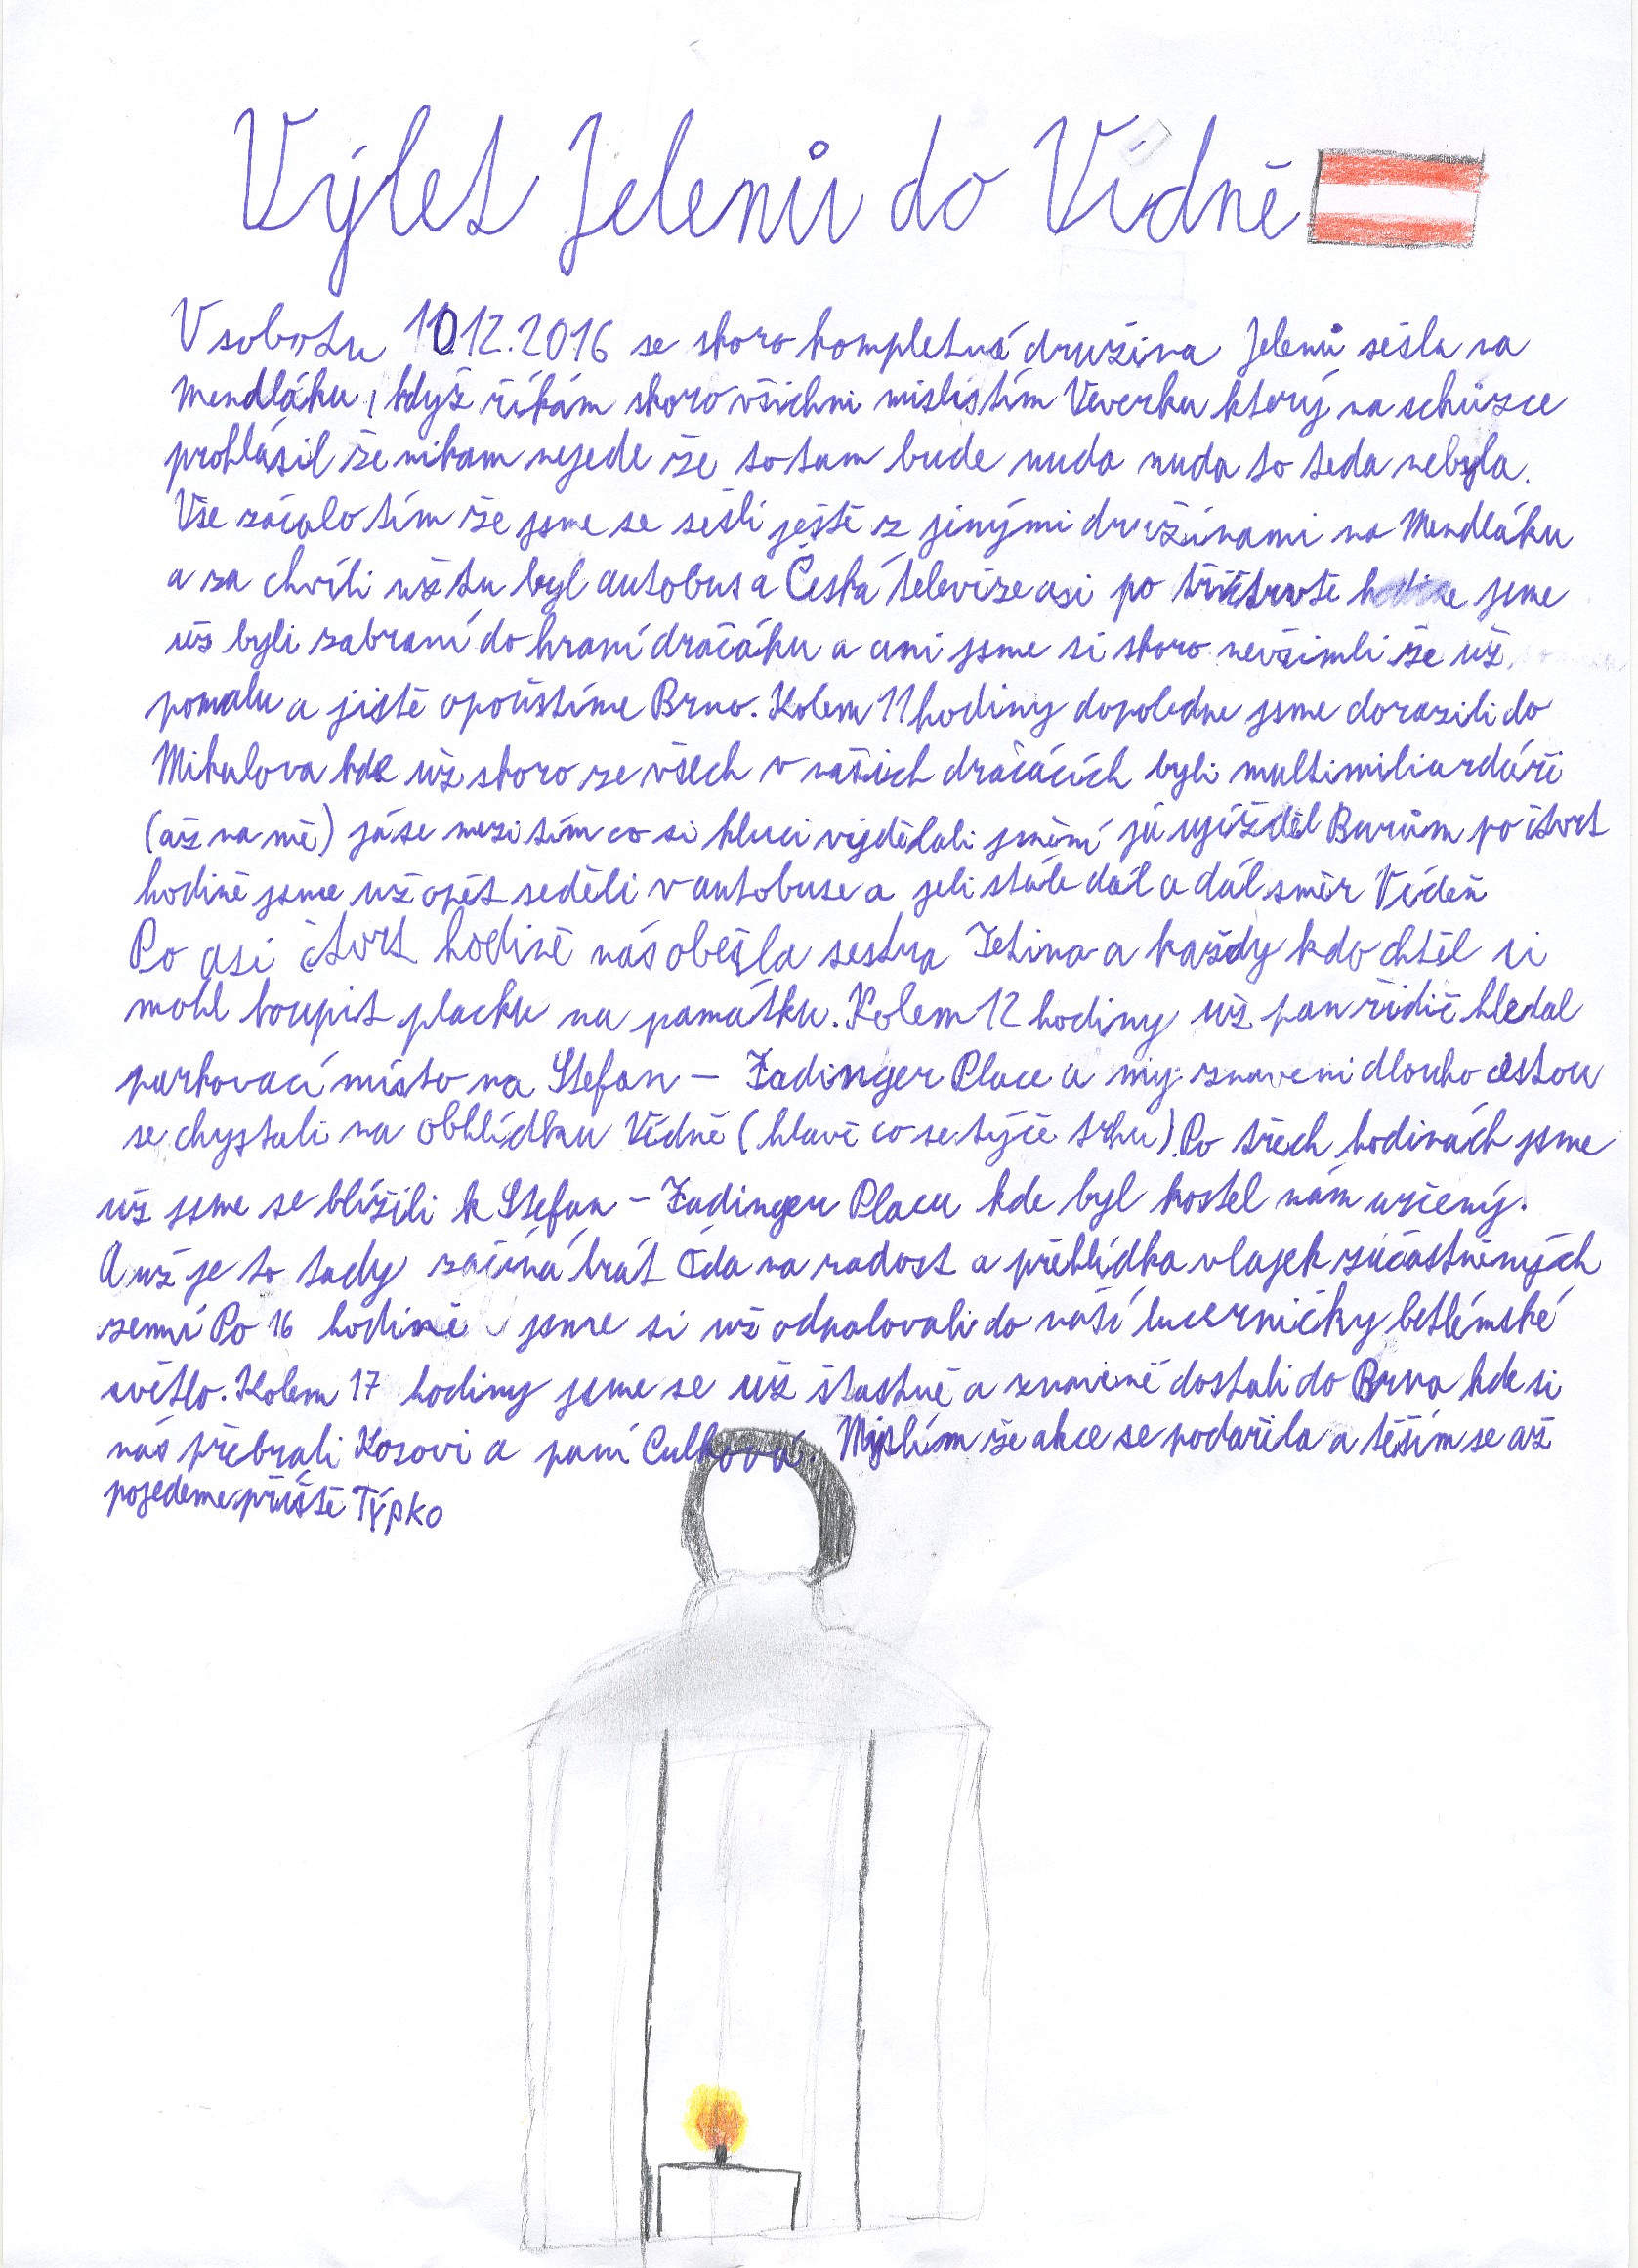 Výlet Jelenů do Vídně
V sobotu 10.12.2016 se skoro kompletná družina Jelenů sešla na
Mendláku, když říkám skoro všichni mislis tím Veverku který na schůzce
prohlásil že nikam nejede že to tam bude nuda nuda to teda nebyla.
Vše začalo tím že jsme se sešli ještě z jinými družinami na Mendláku
a za chvíli už tu byl autobus a Česká televize asi po třičtvrtě hodine jsme
už byli zabraní do hraní dračáku a ani jsme si skoro nevšimli že už
pomalu a jistě opouštíme Brno. Kolem 11 hodiny dopoledne jsme dorazili do
Mikulova kde už skoro ze všech v našich dračácích byli multimiliardáři
(až na mě) já se mezi tím co si kluci vydělali jmění já ujížděl Burům po čtvrt
hodině jsme už opět seděli v autobuse a jeli stále dál a dál směr Vídeň
Po asi čtvrt hodině nás obešla sestra Zetina a každy kdo chtěl si
mohl koupit placku na památku. Kolem 12 hodiny už pan řidič hledal
parkovací místo na Stefan – Fadinger Place a my znaveni dlouho cestou
se chystali na obhlídku Vídně (hlavě co se týče trhu). Po třech hodinách jsme
už jsme se blížili k Stefan – Fadinger Placu kde byl kostel nám určený.
A už je to tady začíná hrát Óda na radost a přehlídka vlajek zúčastněných
zemí Po 16 hodině jsme si už odpalovali do naší lucerničky betlémské
světlo. Kolem 17 hodiny jsme se už šťastně a znaveně dostali do Brna kde si
nás přebrali Kosovi a paní Culková. Myslím že akce se podařila a těším se až
pojedeme příště Týpko